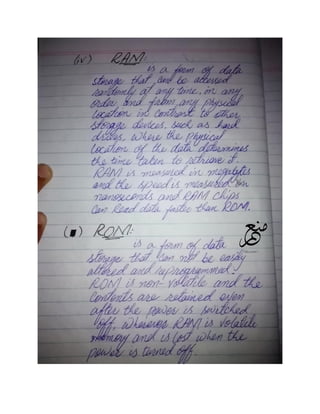 (iv) RAM:
is a form of data
storage that can be accessed
randomly at any time, in any
order and from any physical
location in contrast to other
storage devices, such as hard
drives, where the physical
location of the data determines
the time taken to retrieve it.
RAM is measured in megabytes
and the speed is measured in
nanoseconds and RAM chips
can read data faster than ROM.
ROM:
is a form of data
storage that can not be easily
altered and reprogrammed.
ROM is non-volatile and the
contents are retained even
after the power is switched
off. Whereas RAM is volatile
memory and is lost when the
power is turned off.